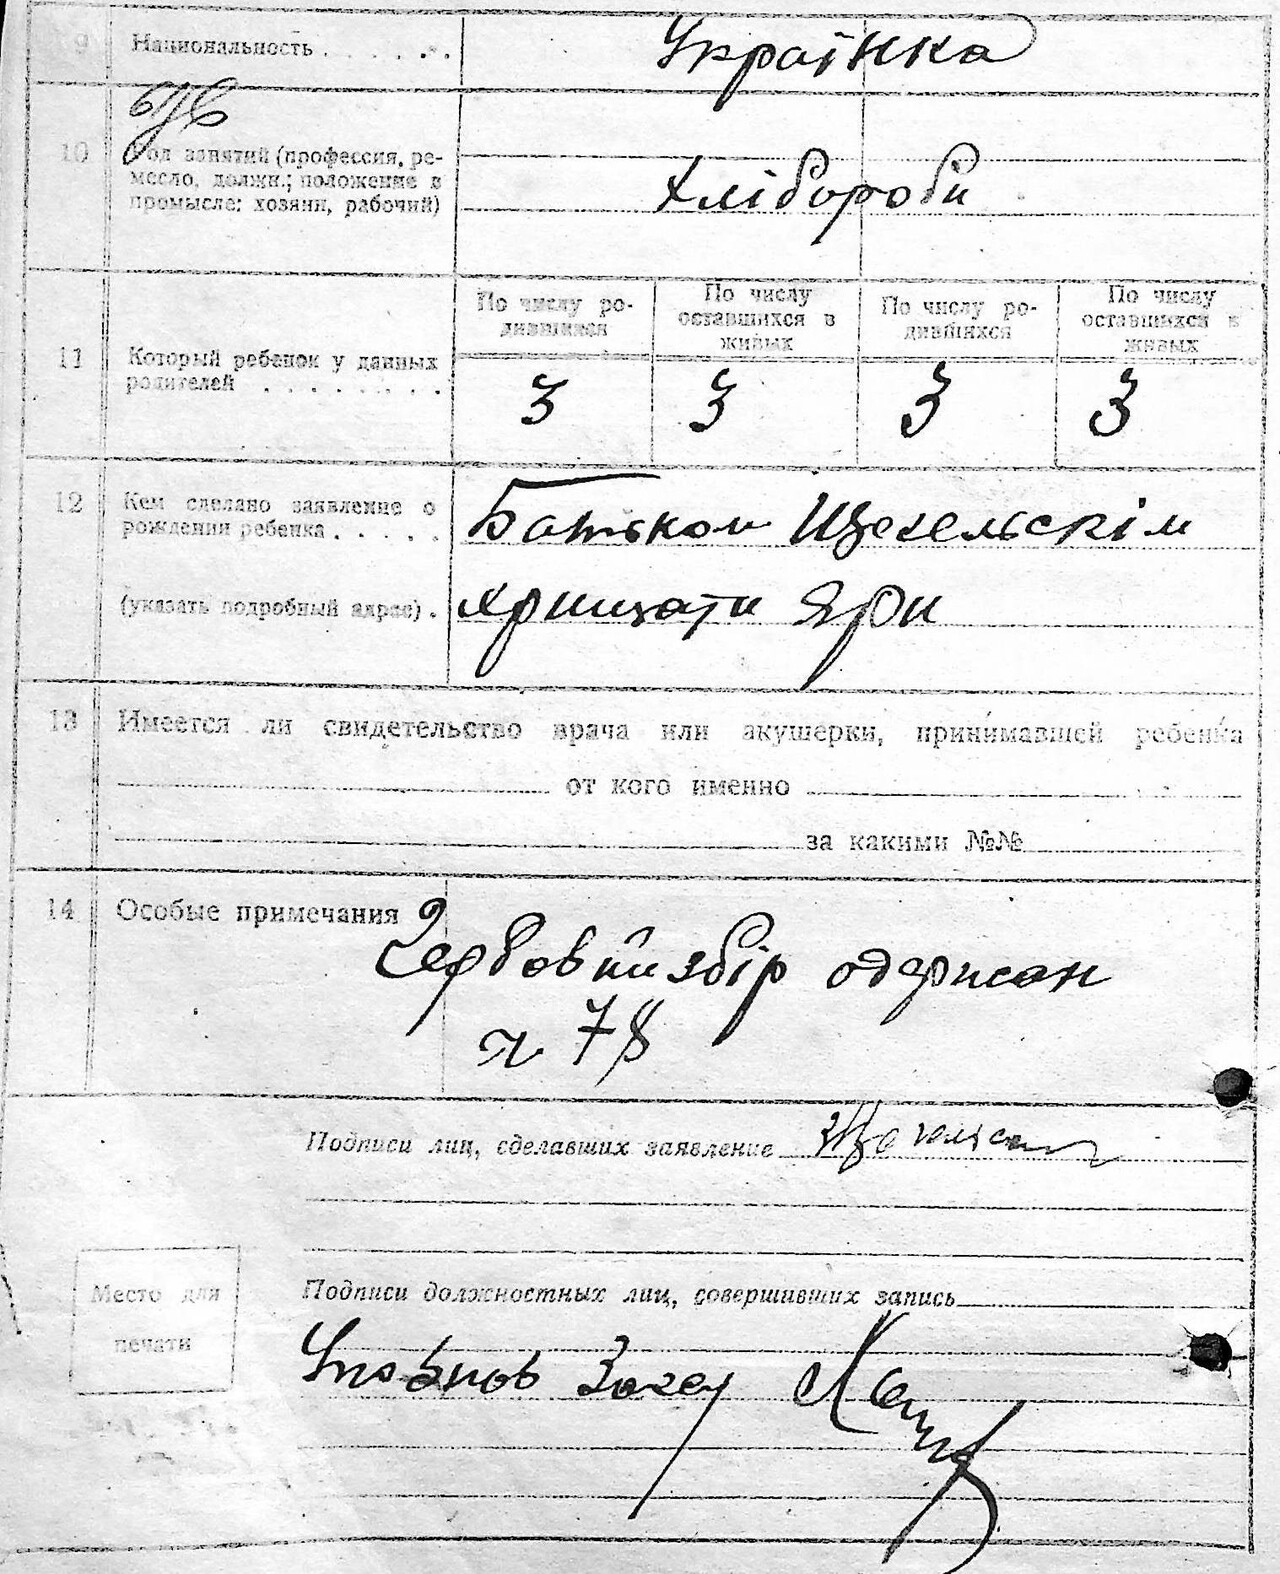 9 Национальность . . . . . . .
Українка
10 Род занятий (профессия, ре-
месло, должн.; положение в
промысле: хозяин, рабочий)
Хлібороби
11 Который ребенок у данных
родителей . . . . . . . .
По числу ро-
дившихся
По числу
оставшихся в
живых
По числу ро-
дившихся
По числу
оставшихся в
живых
3 3 3 3
12 Кем сделано заявление о
рождении ребенка . . . . .
Батьком Щегельскім
(указать подробный адрес) .
Хрищати Яри
13 Имеется ли свидетельство врача или акушерки, принимавшей ребенка
от кого именно
за какими №№
14 Особые примечания
Гербовий збір одержан
78
Подписи лиц, сделавших заявление
Место для
печати
Подписи должностных лиц, совершивших запись